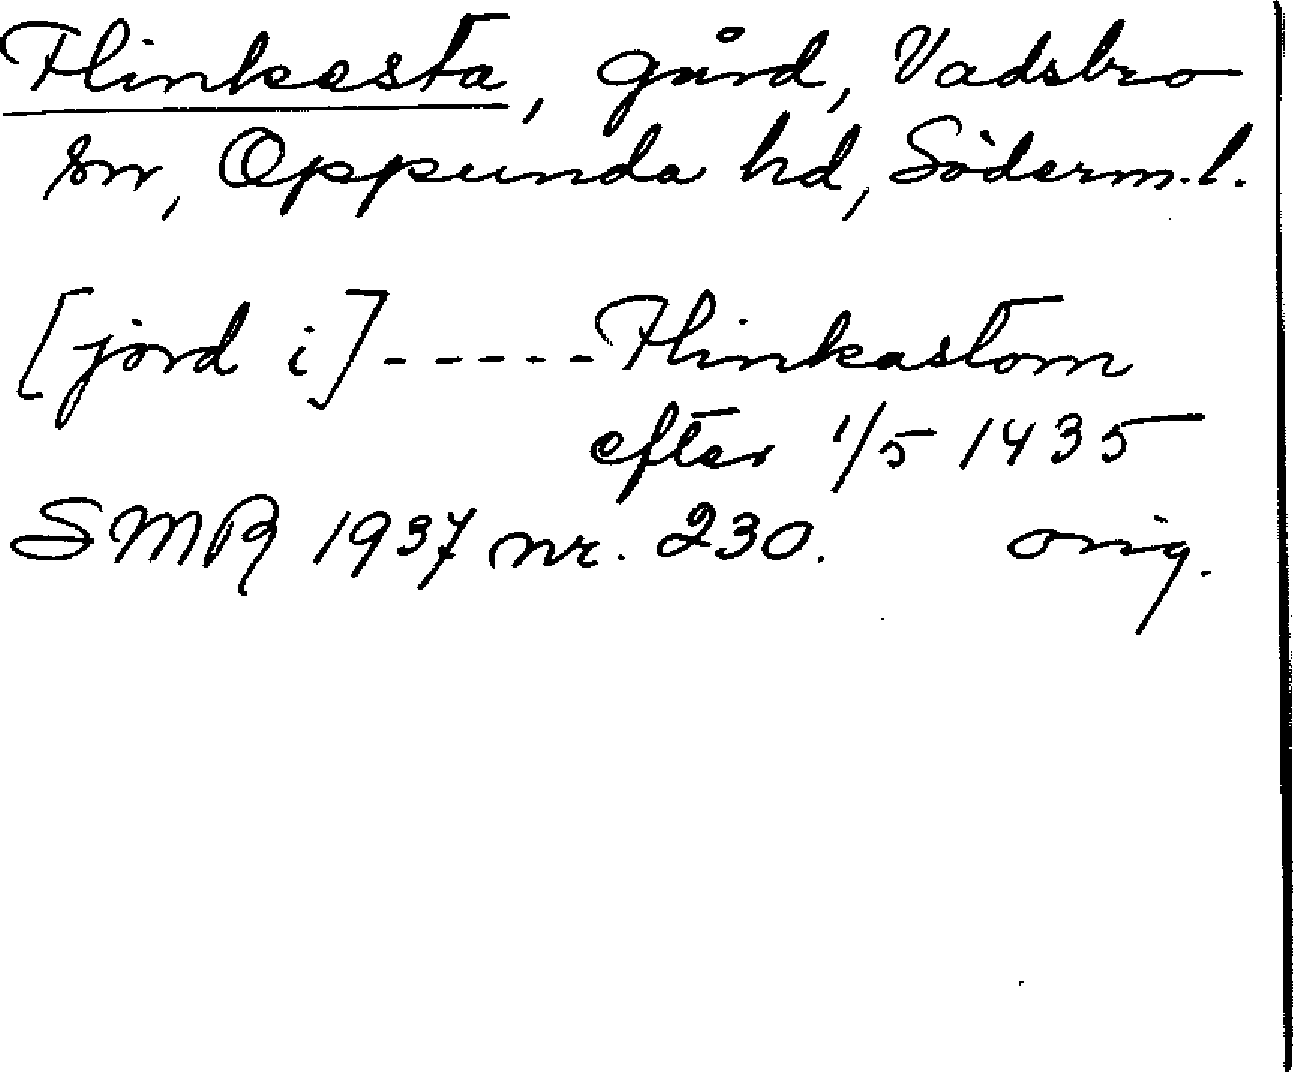 Flinkesta, gård, Vadsbro
sn, Oppunda hd, Söderm.l.
[jord i]-----Flinkastom
efter 1/5 1435
SMR 1937 nr. 230. orig.